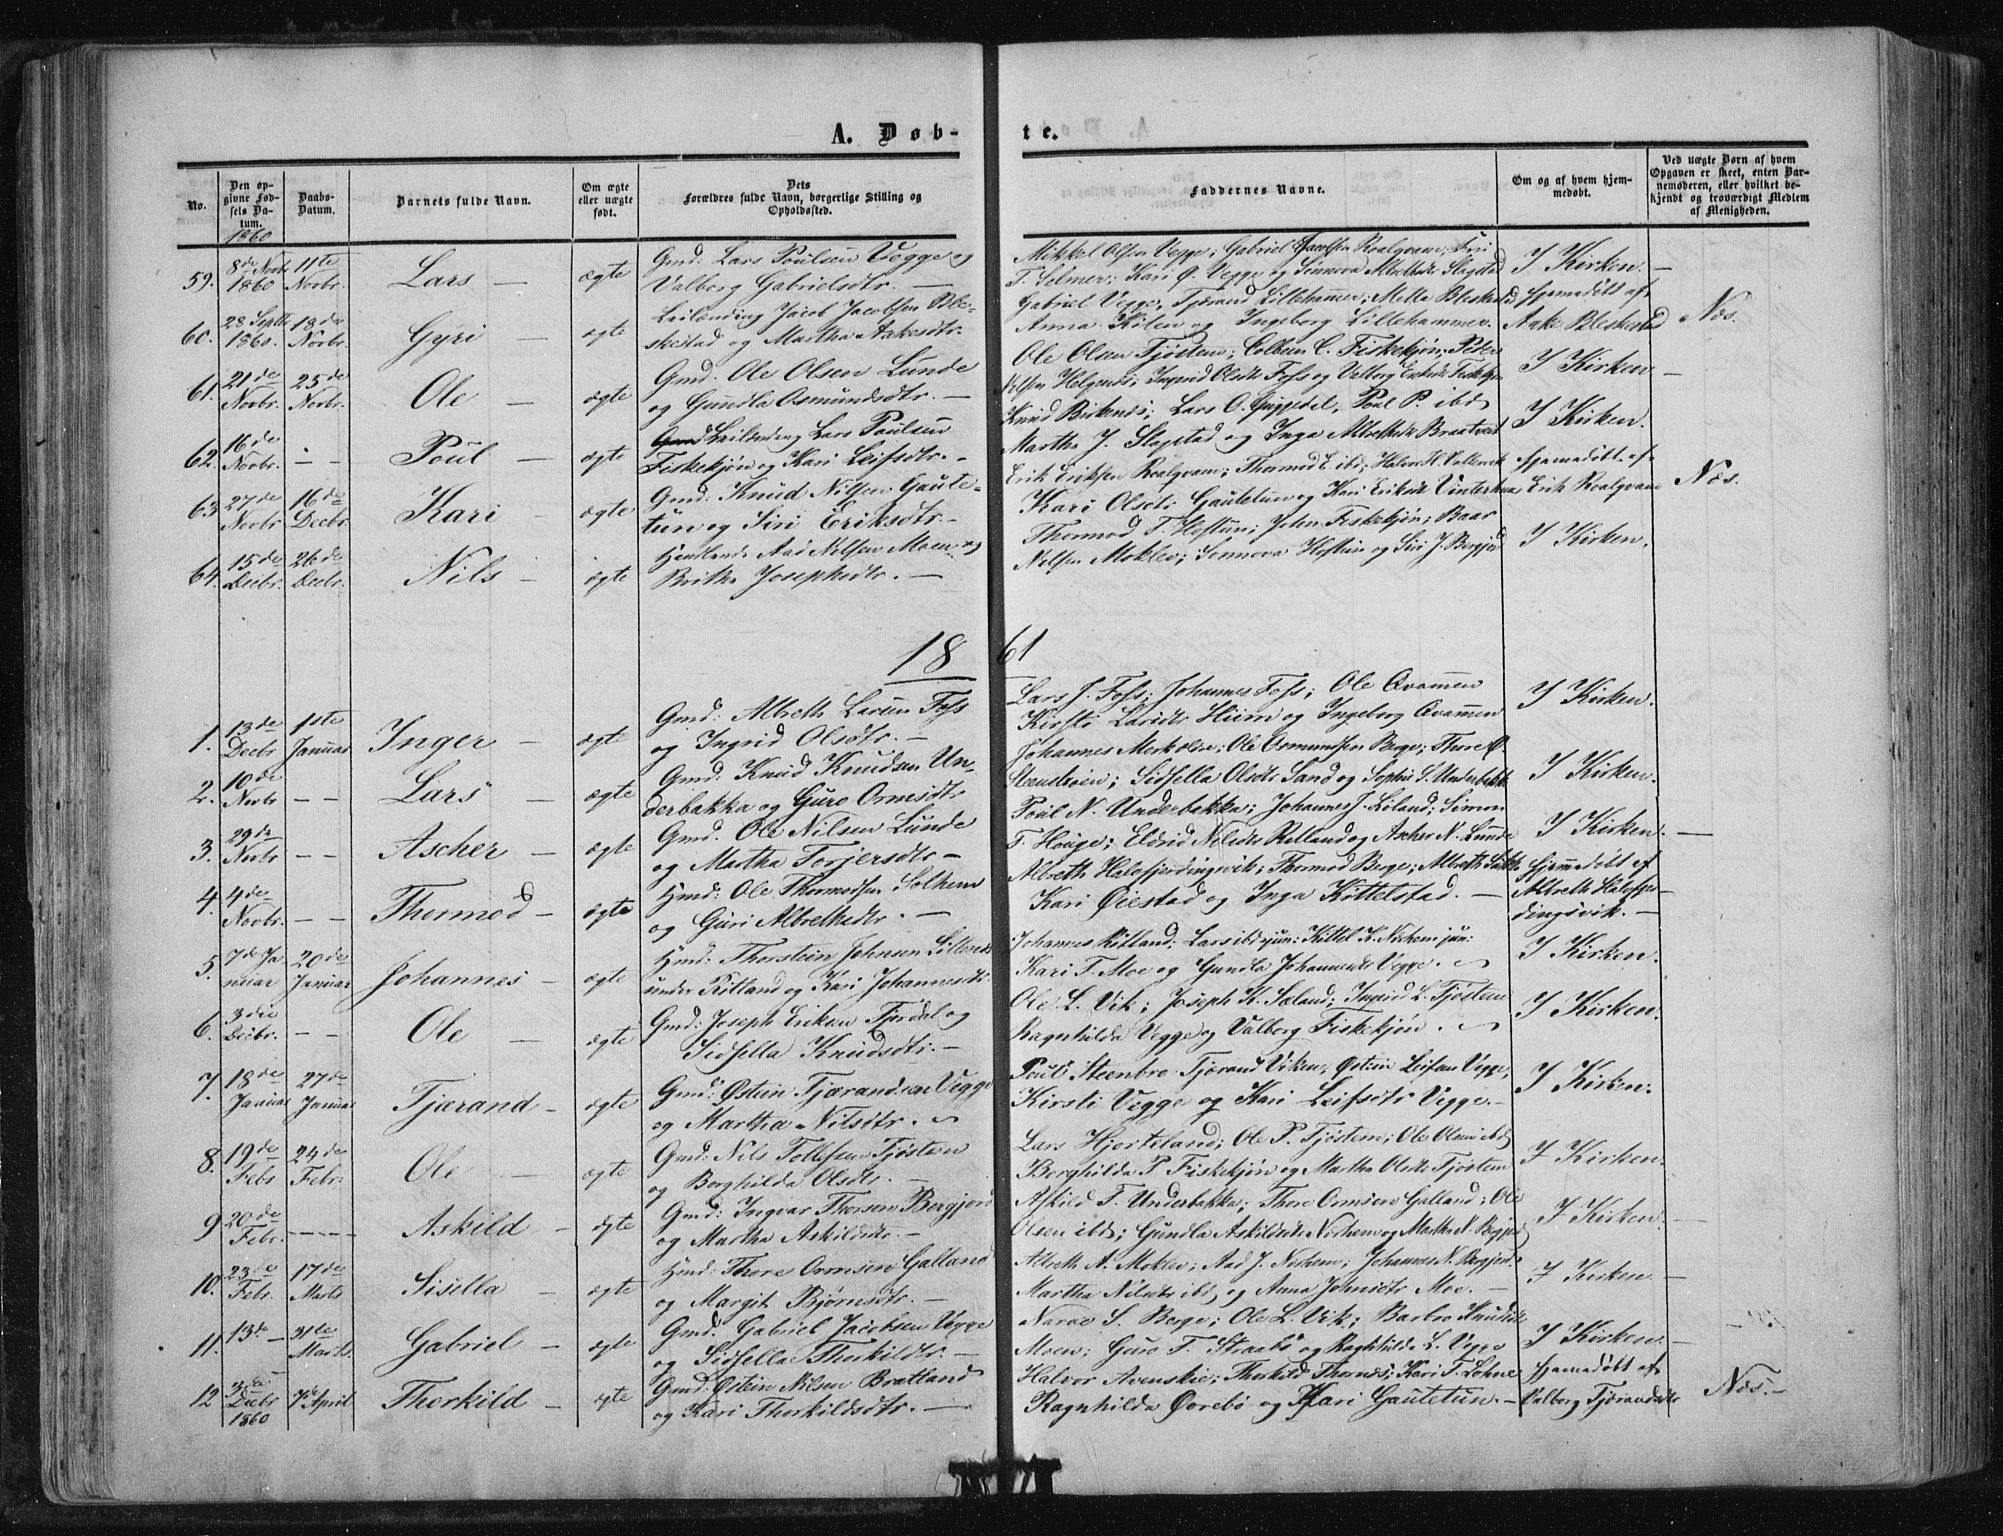 A. Døb-
te.
No.
Den op-
givne Fød-
sels Da-
tum.
1860
Daabs-
Datum.
Barnets fulde Navn.
Om ægte
eller uægte
født.
Dets
Forældres fulde Navn, borgerlige Stilling og
Opholdssted.
Faddernes Navne.
Om og af hvem hjem-
medøbt.
Ved uægte Børn af hvem
Opgaven er skeet, enten Bar-
nemoderen, eller hvilket be-
kjendt og troværdigt Medlem
af Menigheden.
59. 8de Novbr 1860 11te Novbr. Lars — ægte
Gmd: Lars Poulsen Vegge og
Valborg Gabrielsdtr. —
Mikkel Olsen Vegge; Gabriel Jacobsen Roalqvam; Siri
T. Selmer; Kari O. Vegge og Sønnova Albrethsdtr Slagstad
I Kirken. —
60. 28 Septb 1860. 18de Novbr. Gyri — ægte
Leilænding Jacob Jacobsen Ble-
skestad og Martha Aakesdtr.
Gabriel Vegge, Tjærand Lillehammer; Metta Bleskestad
Anna Kilen og Ingeborg Lillehammer.
Hjemmedøbt af
Aake Bleskestad
Næs.
61. 21de Novbr. 25de Novbr. Ole — ægte
Gmd: Ole Olsen Lunde
og Gundla Osmundsdtr. —
Ole Olsen Tjøstem; Colbein C. Fiskekjøn; Peder
Nilsen Helgenæs; Ingrid Olsdtr Foss og Valborg Eriksdtr Fiskekjøn
I Kirken —
62. 16de Novbr. - - Poul — ægte
Leilænding Lars Poulsen
Fiskekjøn og Kari Leifsdtr. -
Knud Birkenæs; Lars O. Guggedal, Poul P. ibd
Martha J. Slagstad og Inga Albrethsdtr Braatveit
I Kirken.
63 27de Novbr. 16de Decbr. Kari — ægte
Gmd: Knud Nilsen Gaute-
tun og Siri Eriksdtr. —
Erik Eriksen Roalqvam; Thormod E. ibd; Halvor H. Vallervik
Kari Olsdtr Gautetun og Kari Eriksdtr Vinterhuus
Hjemmedøbt af
Erik Roalqvam
Næs.
64. 15de Decbr. 26de Decbr. Nils — ægte
Aad Nilsen Moen og
Britha Josephsdtr. —
Thormod T. Hoftun; John Fiskekjøn; Baar
Nilsen Moklev; Sønnova Hoftun og Siri J. Bergjord
I Kirken.
1861
1. 13de Decbr 1ste Januar Inger — ægte
Gmd: Albreth Larsen Foss
og Ingrid Olsdtr. —
Lars J. Foss; Johannes Foss; Ole Qvamen
Kirsti Larsdtr Hiim og Ingeborg Qvamen
I Kirken.
2. 10de Novbr - - Lars — ægte
Gmd: Knud Knudsen Un-
derbakka og Guro Ormsdtr
Johannes Merkelie; Ole Osmundsen Berge; Thore O.
Sidsella Olsdtr Sand og Sophie S. Underbakka
I Kirken.
3. 29de Novbr - - Ascher — ægte
Gmd. Ole Nilsen Lunde
og Martha Torjersdtr —
Poul N. Underbakka; Johannes J. Løland; Simon
T. Houge; Eldrid Nilsdtr Rilland og Ascher N. Lunde
I Kirken. —
4. 4de Novbr. - - Thormod — ægte
Hmd: Ole Thormodsen Solheim
og Guri Albrethsdtr. —
Albreth Halofjerdingsvik; Thormod Berge; Albreth
Kari Øiestad og Inga Kittelstad. —
Hjemmedøbt af
Albreth Halofjer-
dingsvik. —
5. 7de Januar 20de Januar Johannes — ægte
Hmd: Thorstein Johnsen Lillenæs
under Ritland og Kari Johannesdtr.
Johannes Ritland; Lars ibd jun: Kittel K. Norheim jun:
Kari T. Moe og Gundla Johannesdtr Vegge.
I Kirken.
6. 3die Decbr. - - Ole — ægte
Gmd: Joseph Eriksen Fjerdal og
Sidsella Knudsdtr. —
Ole L. Vik; Joseph K. Søland; Ingrid L. Tjøstem
Ragnhilda Vegge og Valborg Fiskekjøn.
I Kirken.
7. 18de Januar 27de Januar Tjærand — ægte
Gmd: Østein Tjærandsen Vegge
og Martha Nilsdtr.
Poul Steenbro Tjærand Viken; Østein Leifsen Vegge;
Kirsti Vegge og Kari Leifsdtr Vegge. —
I Kirken.
8. 19de Febr 24de Febr. Ole — ægte
Gmd: Nils Tollefsen Tjøstem
og Borghilda Olsdtr. —
Lars Hjorteland; Ole P. Tjøstem; Ole Olsen ibd
Borghilda P. Fiskekjøn og Martha Olsdtr Tjøstem
I Kirken.
9 20de Febr. - - - Askild — ægte
Gmd: Ingvar Thorsen Bergjord
og Martha Askildsdtr. —
Askild T. Underbakka; Thore Ormsen Galland; Ole
Olsen ibd; Gundla Askildsdtr Norheim og Martha N. Bergjord
I Kirken. —
10. 23de Febr. 17de Marts Sisella — ægte
Hmd: Thore Ormsen Galland
og Margit Bjørnsdtr. —
Albreth A. Moklev; Aad J. Norheim; Johannes N. Bergjord.
Martha Nilsdtr ibd og Anna Johnsdtr Moe. —
I Kirken. —
11. 13de - 31te Marts. Gabriel — ægte
Gmd. Gabriel Jacobsen Vegge
og Sidsella Thorkildsdtr. —
Narve S. Berge; Ole L. Vik; Barbro Knudsdtr
Moen; Guro T. Straabø og Ragnhilda L. Vegge
I Kirken. —
12 3die Decbr 1860 7de April Thorkild — ægte
Gmd: Østein Nilsen Bratland
og Kari Thorkildsdtr. —
Halvor Avenskie; Thorkild Thornæs; Kari T. Lohne
Ragnhilda Ørebø og Kari Gautetun. —
Hjemmedøbt af
Valborg Tjærandsdtr
Næs. —